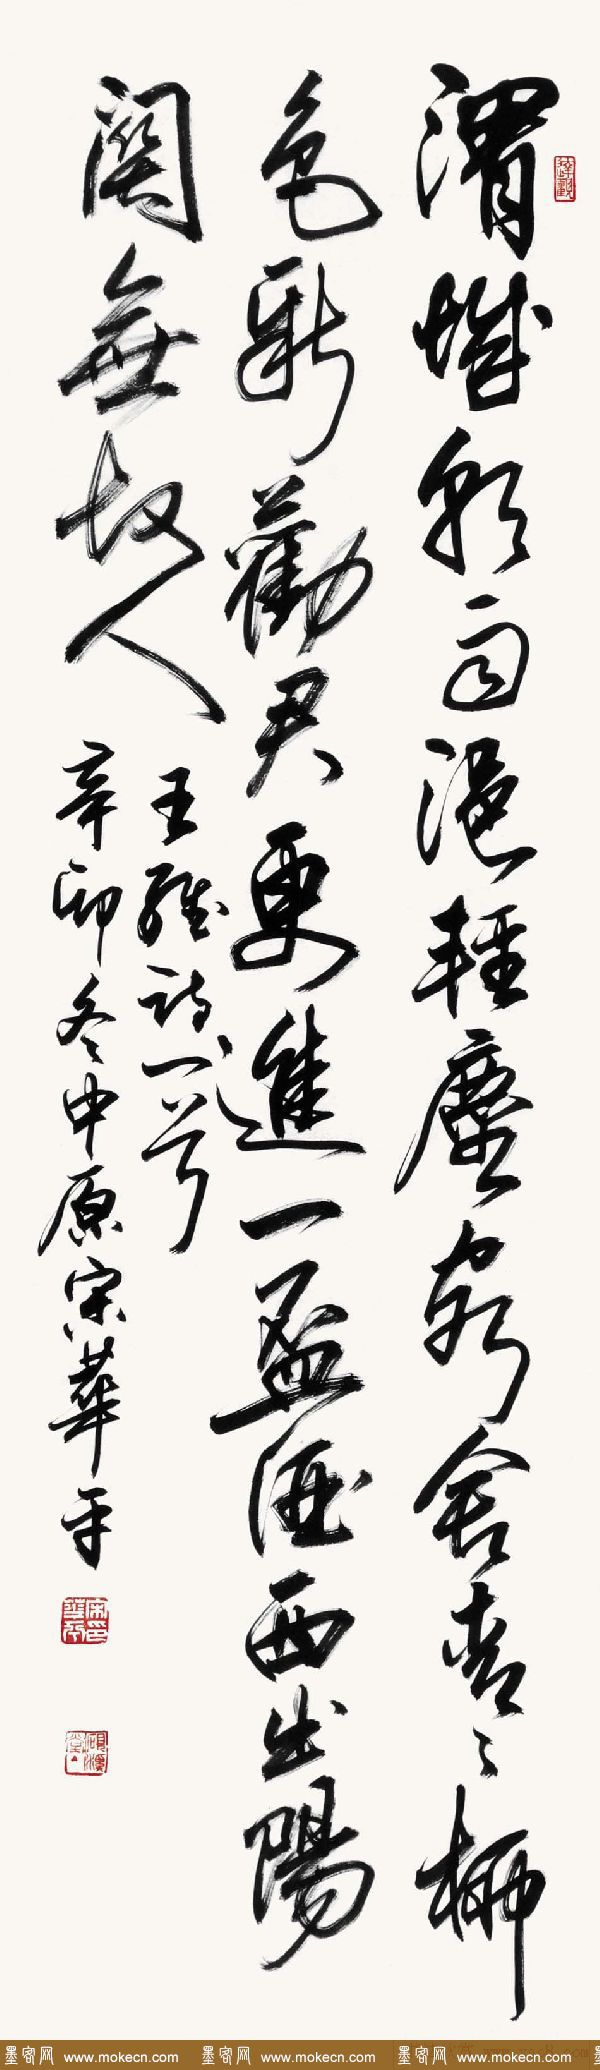 渭城朝雨浥輕塵客舍青〻柳
色新勸君更進一盃酒西出陽
關無故人
王維詩一首
辛卯冬中原宋華平
墨客网 www.mokecn.com 墨客网 www.mokecn.com 墨客网 www.mokecn.com